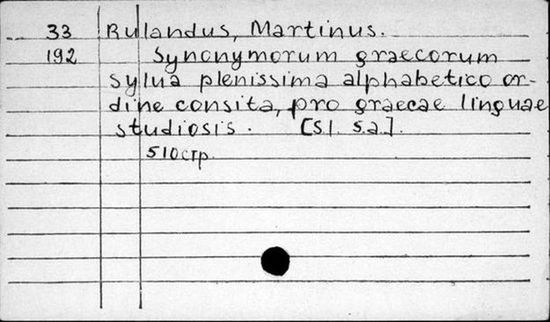 33 Rulandus, Martinus.
192 Synonymorum graecorum
sylua plenissima alphabetico or-
dine consita, pro graecae linguae
studiosis. [S.l. s.a].
510 стр.